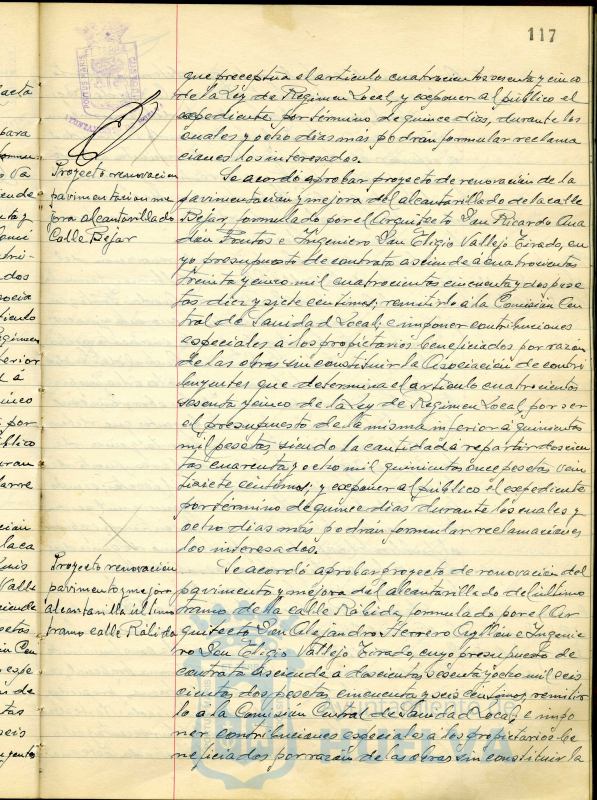 117
que preceptua el articulo cuatrocientos sesenta y cinco
de la Ley de Regimen Local, y exponer al público el
expediente por término de quince dias, durante los
cuales y ocho dias mas podrán formular reclama
ciones los interesados.
Proyecto renovacion
pavimentacion me
jora alcantarillado
Calle Bejar
Se acordó aprobar proyecto de renovación de la
pavimentacion y mejora del alcantarillado de la calle
Bejar, formulado por el Arquitecto Don Ricardo Ana
dón Frutos e Ingeniero Don Eligio Vallejo Tirado, cu
yo presupuesto de contrata asciende a cuatrocientas
treinta y cinco mil cuatrocientas cincuenta y dos pese
tas diez y siete centimos; remitirlo á la Comisión Cen
tral de Sanidad Local; e imponer contribuciones
especiales á los propietarios beneficiados por razón
de las obras sin constituir la Asociación de contri
buyentes que determina el articulo cuatrocientos
sesenta y cinco de la Ley de Regimen Local, por ser
el presupuesto de la misma inferior á quinientas
mil pesetas, siendo la cantidad á repartir doscien
tas cuarenta y ocho mil quinientas once pesetas vein
tisiete centimos; y exponer al público el expediente
por término de quince dias durante los cuales y
ocho dias más podrán formular reclamaciones
los interesados.
Proyecto renovacion
pavimento y mejora
alcantarilla ultimo
tramo calle Rábida
Se acordó aprobar proyecto de renovación del
pavimento y mejora del alcantarillado del último
tramo de la calle Rábida, formulado por el Ar
quitecto Don Alejandro Herrero Ayllon e Ingenie
ro Don Eligio Vallejo Tirado, cuyo presupuesto de
contrata asciende á doscientas sesenta y ocho mil seis
cientas dos pesetas cincuenta y seis centimos, remitir
lo a la Comisión Central de Sanidad Local, e impo
ner contribuciones especiales á los propietarios be
neficiados por razón de las obras sin constituir la
Ayuntamiento de
HUELVA